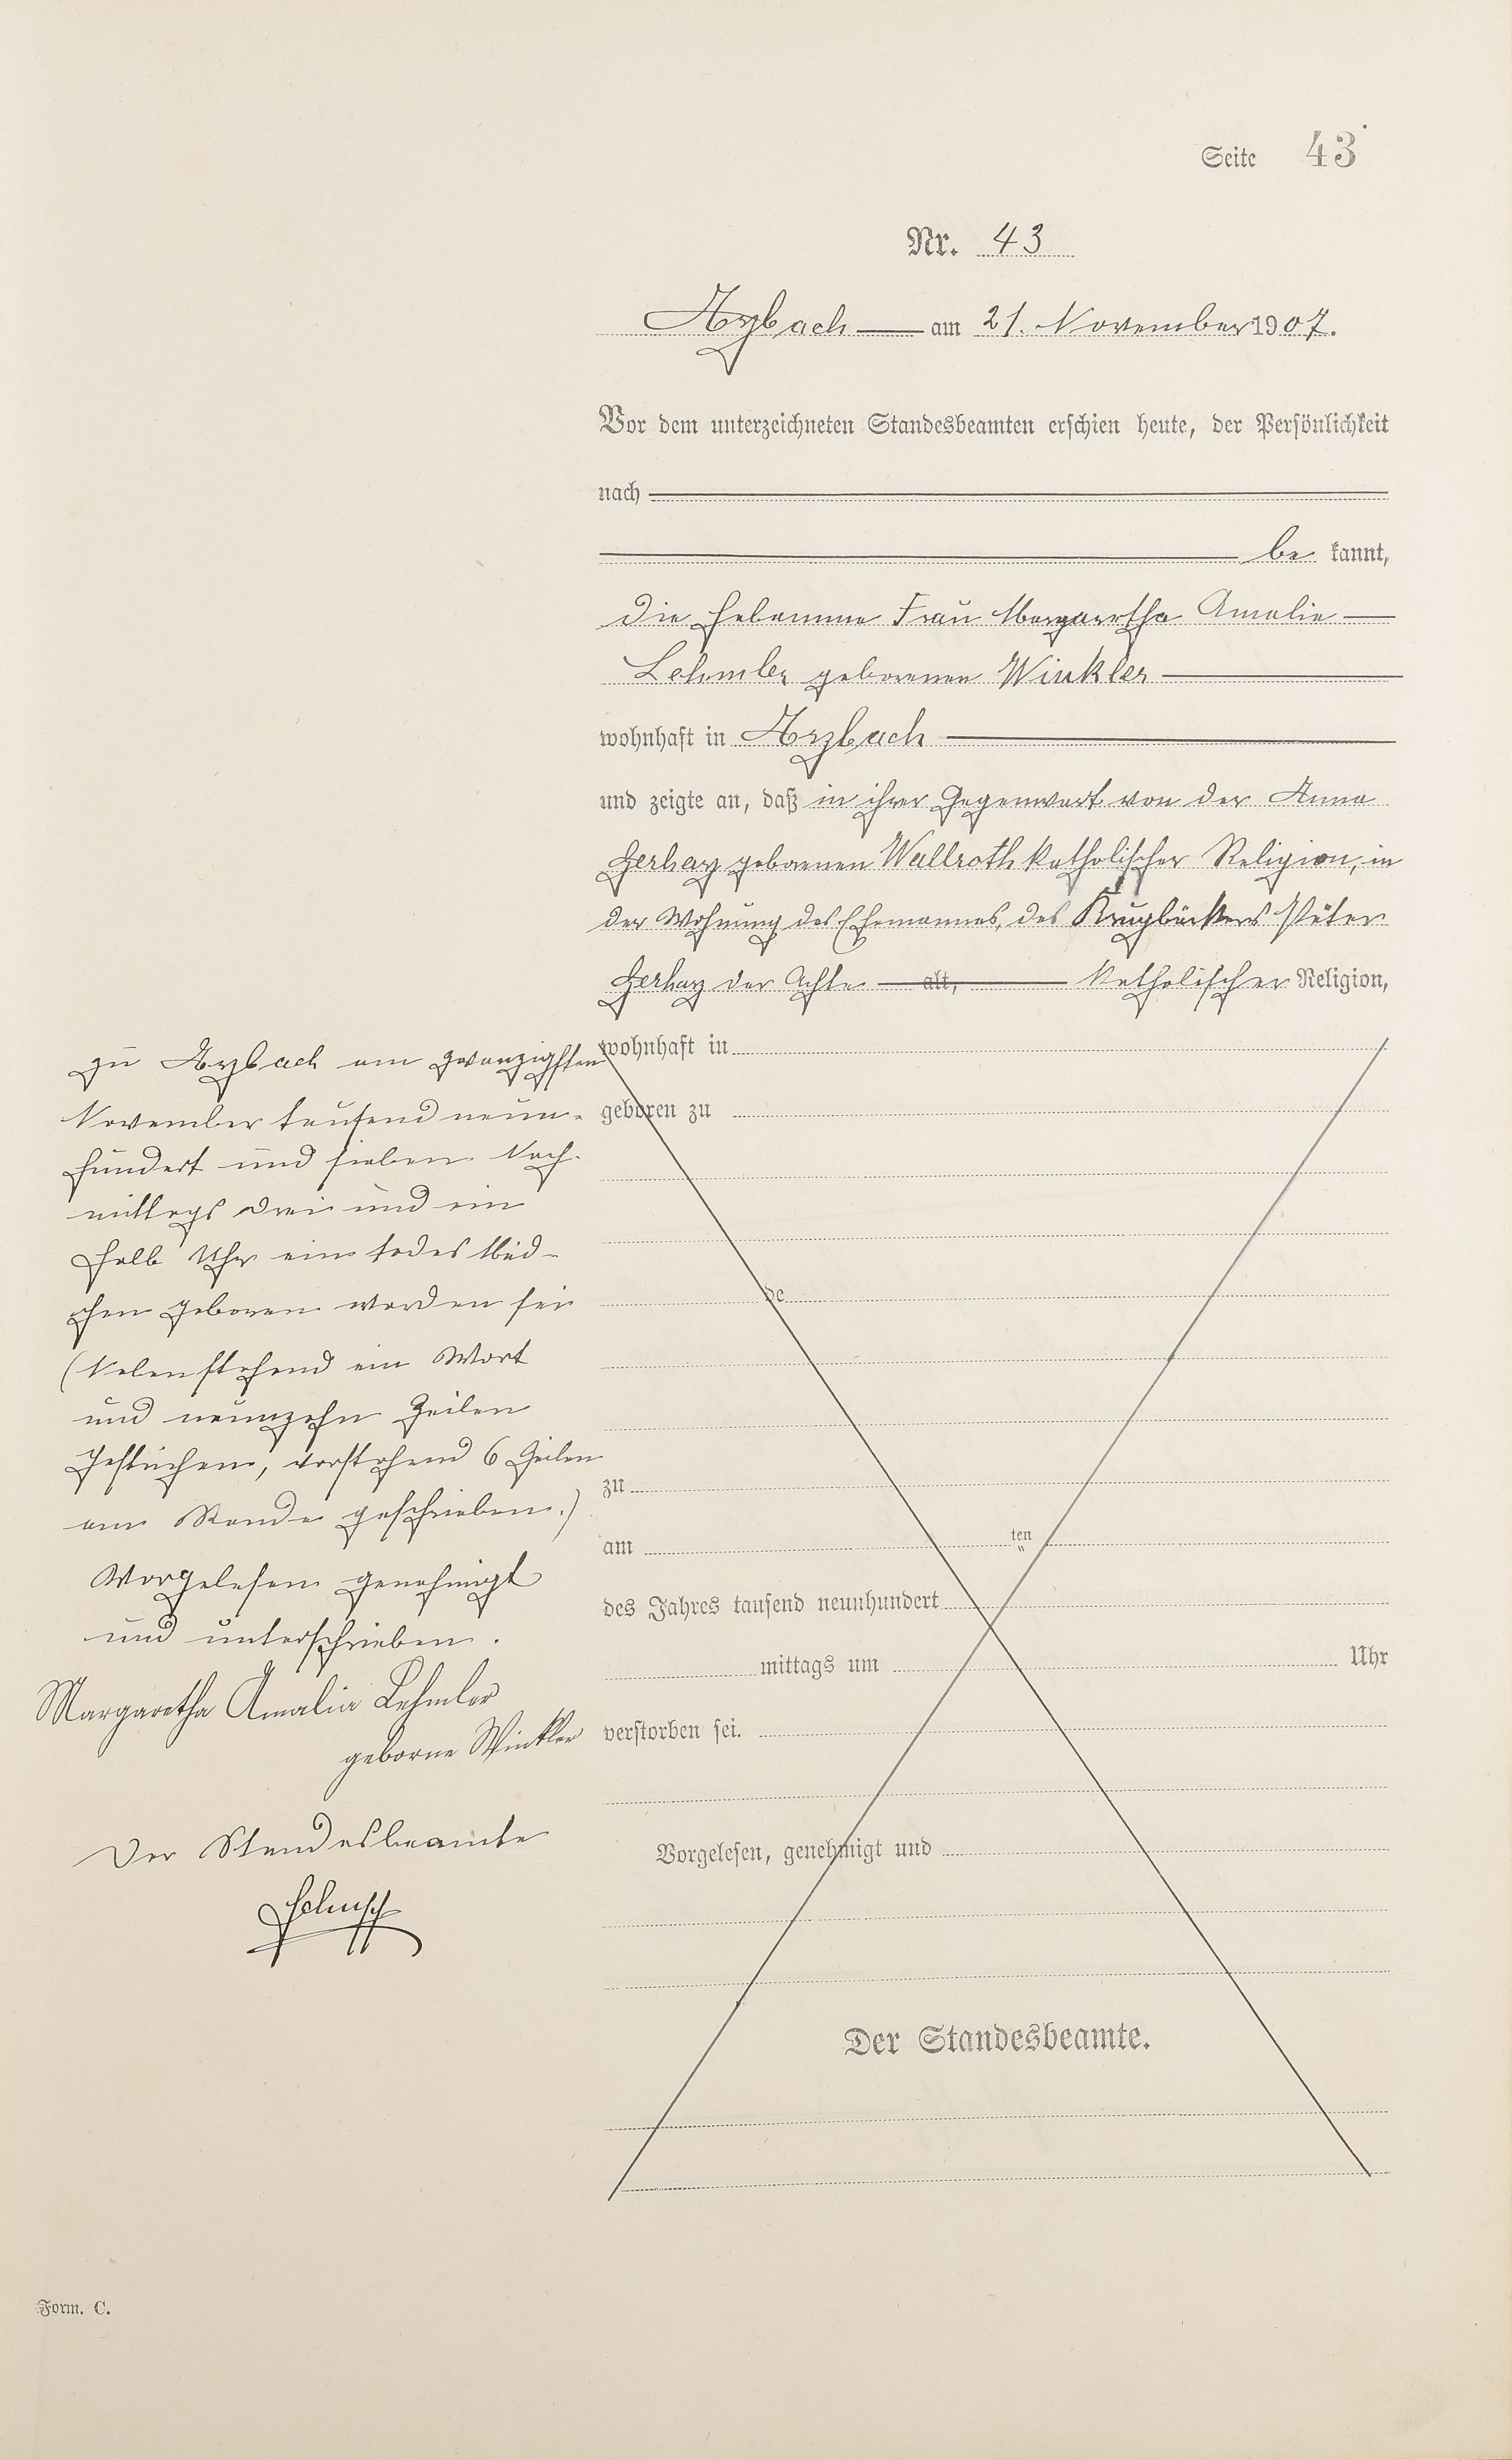 Seite 43
Nr. 43
Arzbach am 21. November 1907.
Vor dem unterzeichneten Standesbeamten erschien heute, der Persönlichkeit
nach
be kannt,
die Hebamme Frau Margaretha Amalie
Lehmler geborenen Winkler
wohnhaft in Arzbach
und zeigte an, daß in ihrer Gegenwart von der Anna
Gerharz geborenen Wallroth katholischer Religion, in
der Wohnung des Ehemannes, des Krugbäckers Peter
Gerharz der Achte alt, katholischer Religion,
wohnhaft in
geboren zu
de
zu
am ten
des Jahres tausend neunhundert
mittags um Uhr
verstorben sei.
Vorgelesen, genehmigt und
Der Standesbeamte.
zu Arzbach am zwanzigsten
November tausend neun-
hundert und sieben Nach-
mittags drei und ein
halb Uhr ein todes Mäd-
chen geboren worden sei
(Nebenstehend ein Wort
und neunzehn Zeilen
gestrichen, vorstehend 6 Zeilen
am Rande geschrieben.)
Vorgelesen genehmigt
und unterschrieben.
Margaretha Amalia Lehmler
geborne Winkler
Der Standesbeamte
Form. C.